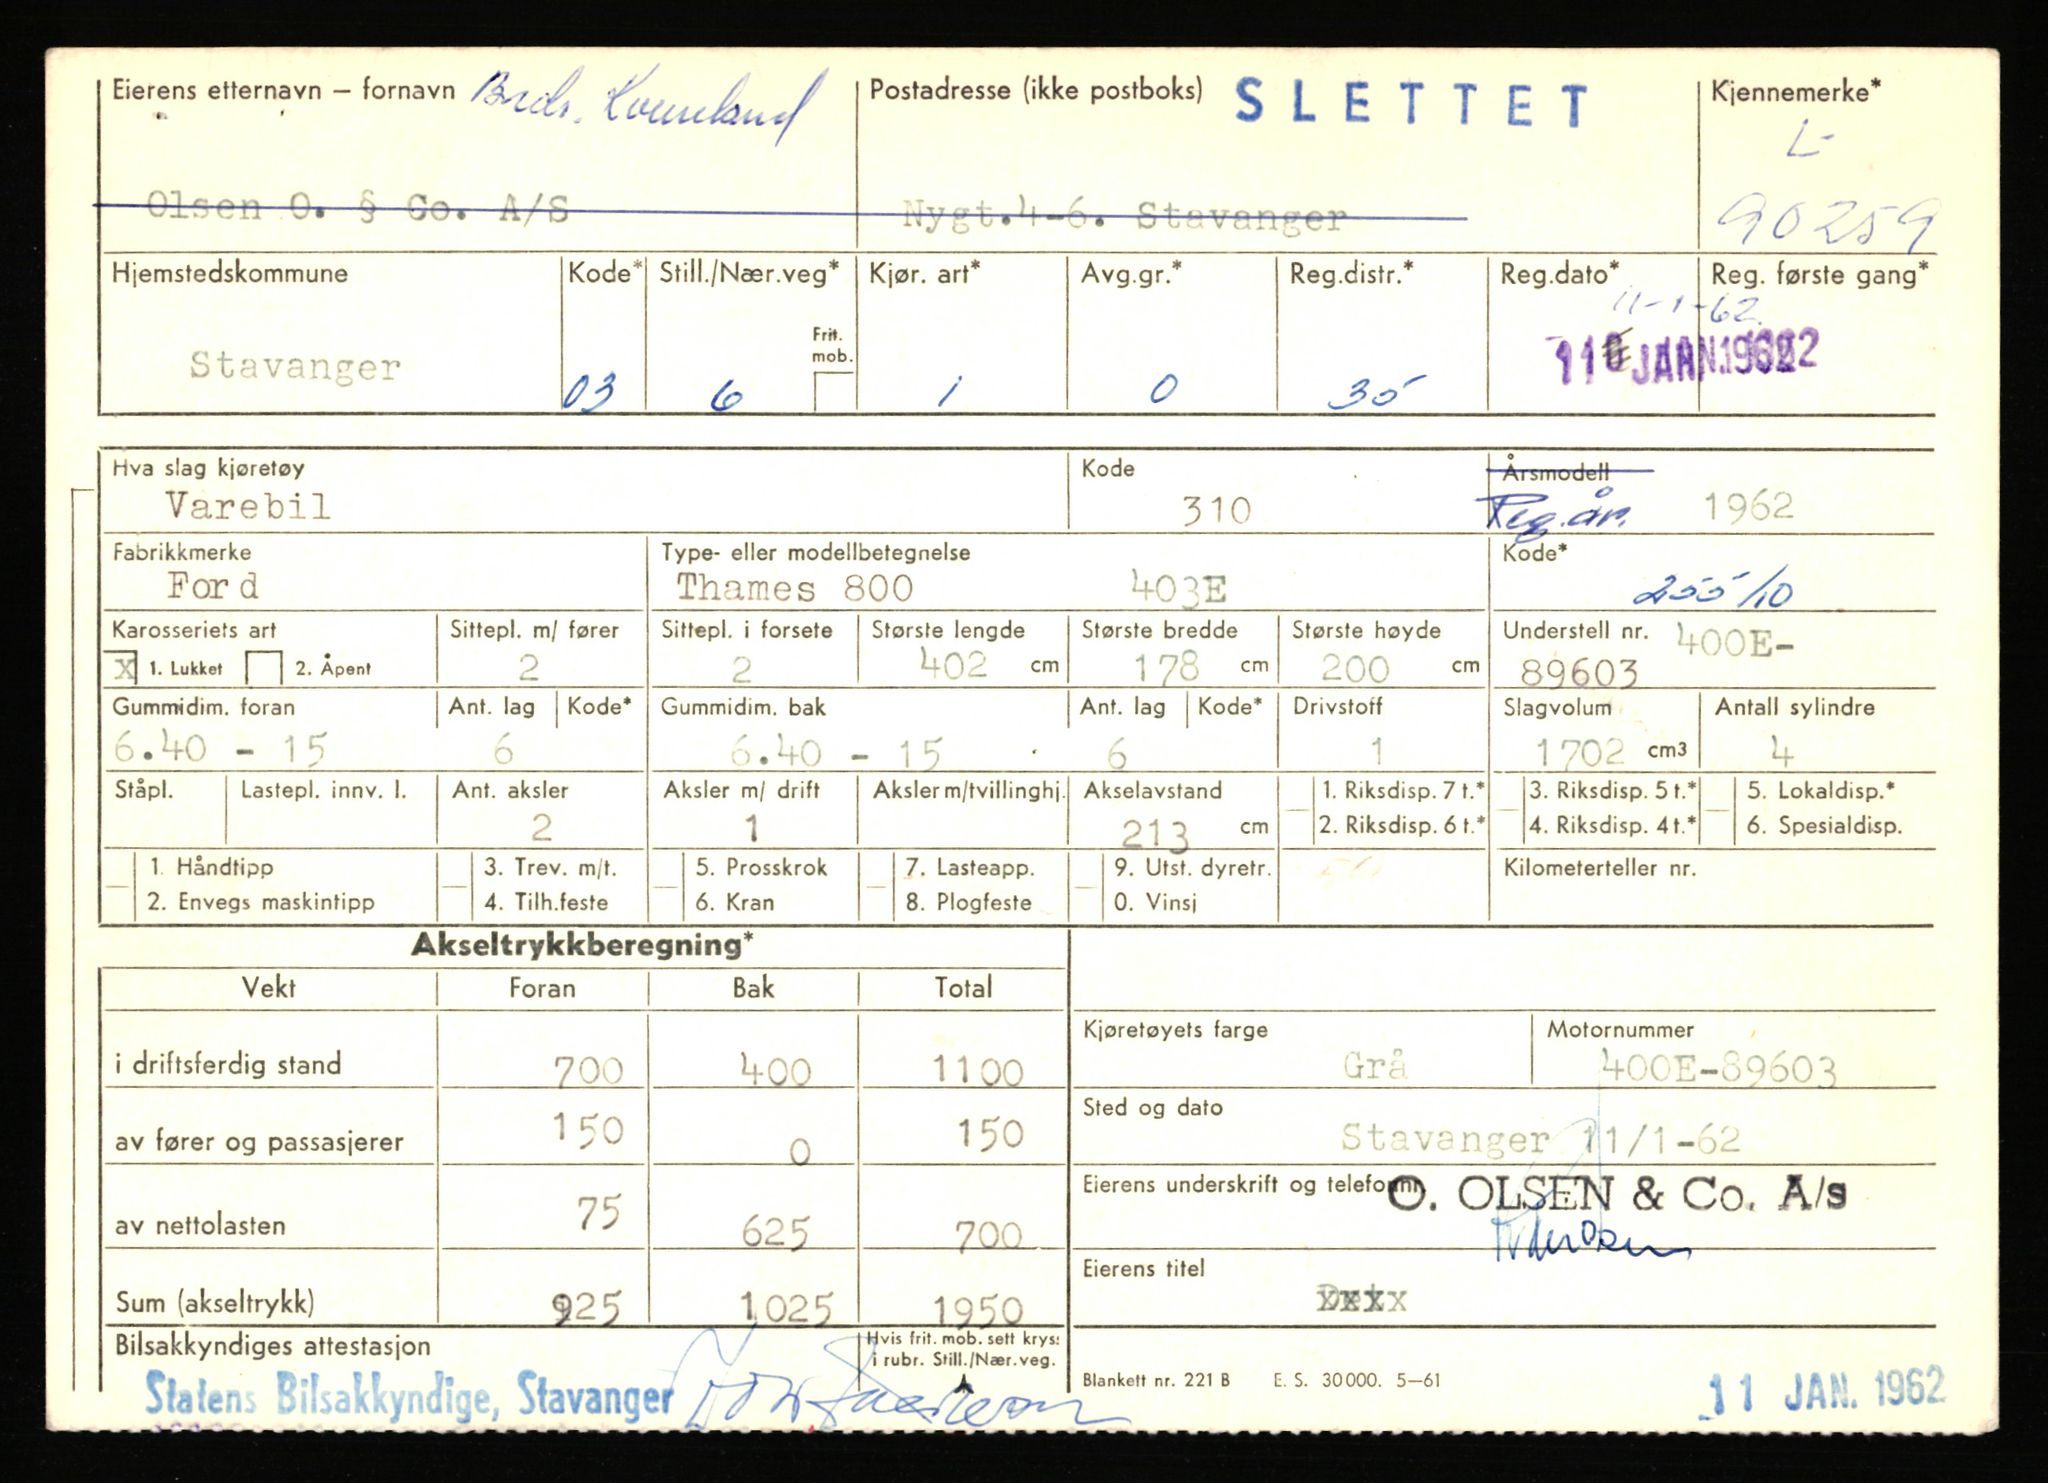 Eierens etternavn – fornavn Postadresse (ikke postboks) SLETTET Kjennemerke*
L-
Olsen O. § Co. A/S Nygt.4-6. Stavanger 90259
Hjemstedskommune Kode* Still./Nær.veg* Kjør. art* Avg.gr.* Reg.distr.* Reg.dato* Reg. første gang*
11-1-62
Frit.
mob.
Stavanger 03 6 1 0 35
Hva slag kjøretøy Kode Årsmodell
Varebil 310 Reg.år. 1962
Fabrikkmerke Type- eller modellbetegnelse Kode*
Ford Thames 800 403E 255/10
Karosseriets art Sittepl. m/ fører Sittepl. i forsete Største lengde Største bredde Største høyde Understell nr. 400E-
X 1. Lukket 2. Åpent 2 2 402 cm 178 cm 200 cm 89603
Gummidim. foran Ant. lag Kode* Gummidim. bak Ant. lag Kode* Drivstoff Slagvolum Antall sylindre
6.40 - 15 6 6.40 - 15 6 1 1702 cm3 4
Ståpl. Lastepl. innv. l. Ant. aksler Aksler m/ drift Aksler m/tvillinghj. Akselavstand 1. Riksdisp. 7 t.* 3. Riksdisp. 5 t.* 5. Lokaldisp.*
2 1 213 cm 2. Riksdisp. 6 t.* 4. Riksdisp. 4 t.* 6. Spesialdisp.
1. Håndtipp 3. Trev. m/t. 5. Prosskrok 7. Lasteapp. 9. Utst. dyretr. Kilometerteller nr.
2. Envegs maskintipp 4. Tilh.feste 6. Kran 8. Plogfeste 0. Vinsj
Akseltrykkberegning*
Vekt Foran Bak Total
Kjøretøyets farge Motornummer
i driftsferdig stand 700 400 1100 Grå 400E-89603
Sted og dato
av fører og passasjerer 150 0 150 Stavanger 11/1-62
Eierens underskrift og telefonnr. O. OLSEN & Co. A/s
av nettolasten 75 625 700
Eierens titel
Sum (akseltrykk) 925 1025 1950 xxxx
Bilsakkyndiges attestasjon Hvis frit. mob. sett kryss
i rubr. Still./Nær.veg.
Statens Bilsakkyndige, Stavanger Blankett nr. 221 B E. S. 30 000. 5–61 11 JAN. 1962